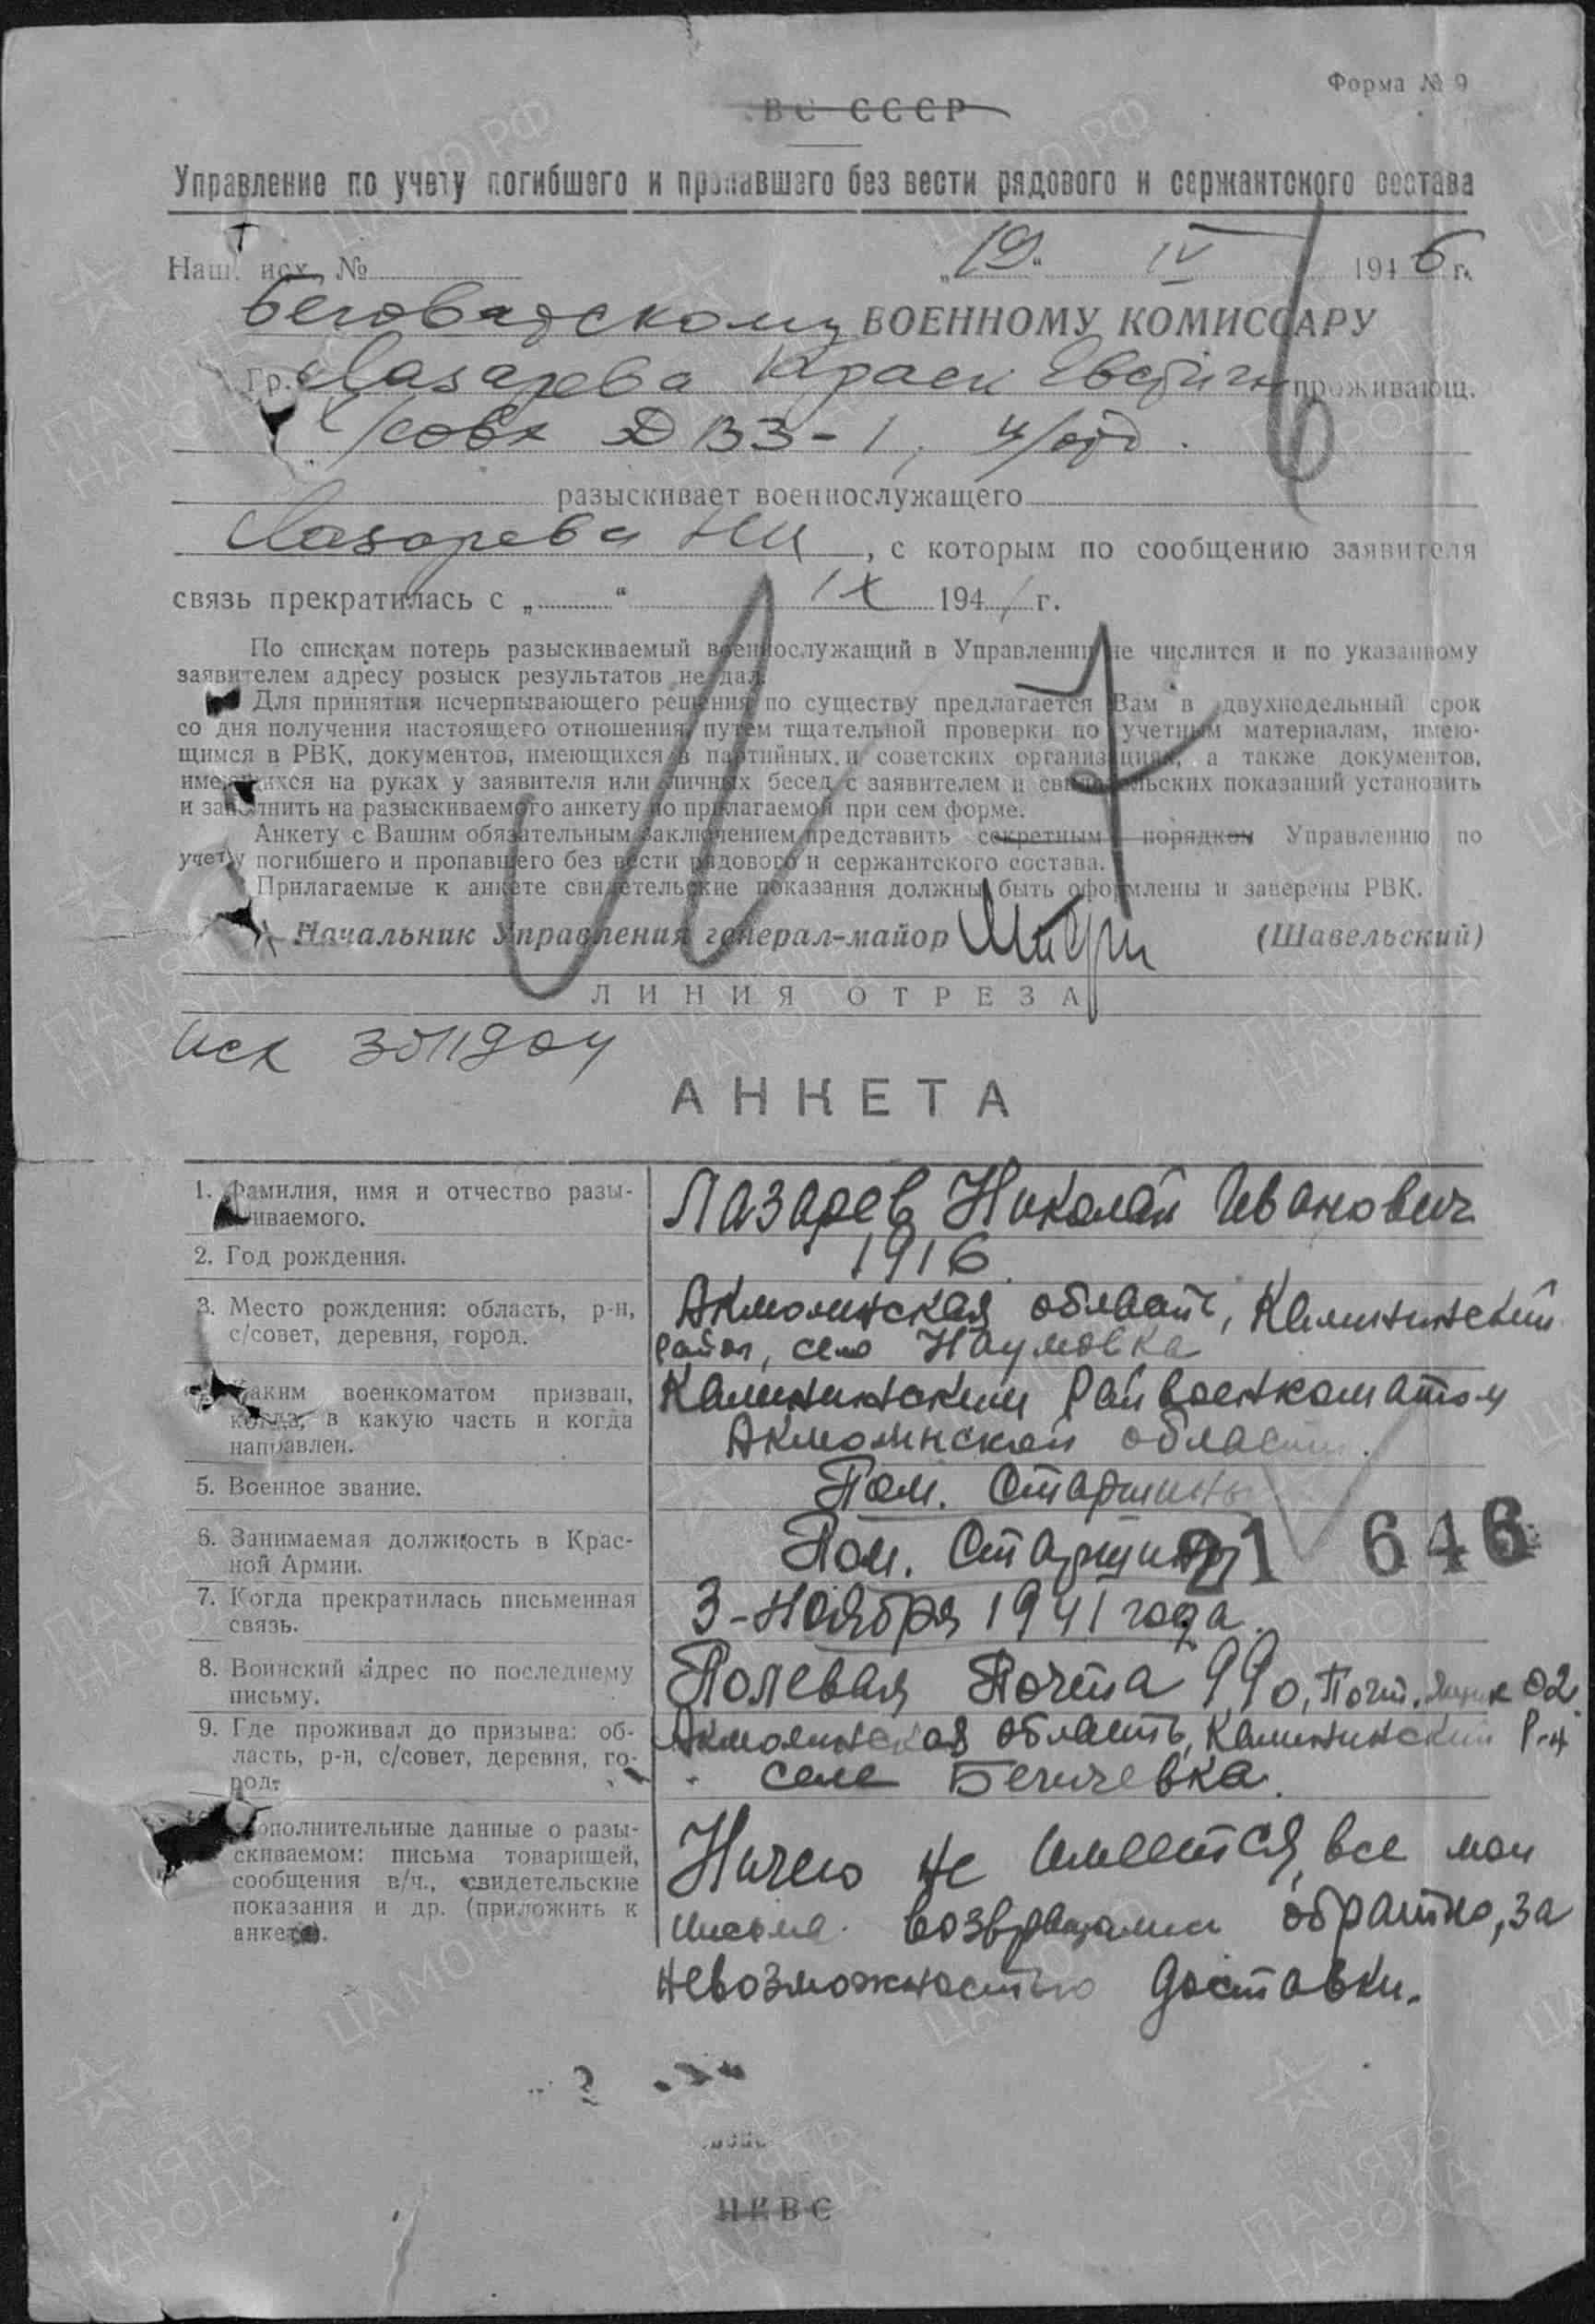 Форма № 9
ВС СССР
Управление по учету погибшего и пропавшего без вести рядового и сержантского состава
Наш. исх. № „19“ IV 1946 г.
Беговатскому ВОЕННОМУ КОМИССАРУ
Гр. Лазарева проживающ.
разыскивает военнослужащего
Лазарева НИ, с которым по сообщению заявителя
связь прекратилась с „ “ IX 1941 г.
По спискам потерь разыскиваемый военнослужащий в Управлении не числится и по указанному
заявителем адресу розыск результатов не дал.
Для принятия исчерпывающего решения по существу предлагается Вам в двухнедельный срок
со дня получения настоящего отношения, путем тщательной проверки по учетным материалам, имею-
щимся в РВК, документов, имеющихся в партийных и советских организациях, а также документов,
имеющихся на руках у заявителя или личных бесед с заявителем и свидетельских показаний установить
и заполнить на разыскиваемого анкету по прилагаемой при сем форме.
Анкету с Вашим обязательным заключением представить секретным порядком Управлению по
учету погибшего и пропавшего без вести рядового и сержантского состава.
Прилагаемые к анкете свидетельские показания должны быть оформлены и заверены РВК.
Начальник Управления генерал-майор (Шавельский)
ЛИНИЯ ОТРЕЗА
АНКЕТА
1. Фамилия, имя и отчество разы-
скиваемого.
Лазарев Николай Иванович
2. Год рождения.
1916
3. Место рождения: область, р-н,
с/совет, деревня, город.
Акмолинская область, Калининский
район, село Наумовка
Каким военкоматом призван,
когда, в какую часть и когда
направлен.
Калининским Райвоенкоматом
Акмолинской области.
5. Военное звание.
Пом. Старшины
6. Занимаемая должность в Крас-
ной Армии.
Пом. Старшины
21 646
7. Когда прекратилась письменная
связь.
3-ноября 1941 года.
8. Воинский адрес по последнему
письму.
Полевая Почта 990, Почт. Ящик 02.
9. Где проживал до призыва: об-
ласть, р-н, с/совет, деревня, го-
род.
Акмолинская область, Калининский р-н
село
Дополнительные данные о разы-
скиваемом: письма товарищей,
сообщения в/ч., свидетельские
показания и др. (приложить к
анкете).
Ничего не имеется, все мои
письма возвращали обратно, за
невозможностью доставки.
НКВС